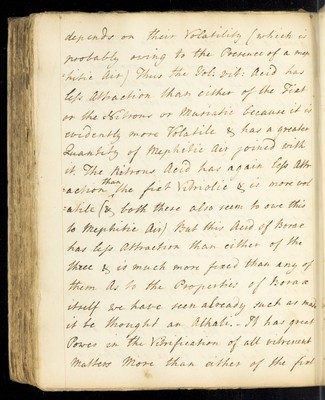 depends on their Volatility (which is
probably owing to the Presence of a mep
=hitic Air) Thus the Vol: Vit: Acid has
less Attraction than either of the Fixt
or the Nitrous or Muriatic because it is
evidently more Volatile & has a greater
Quantity of Mephitic Air joined with
it The Nitrous Acid has again less Attr
=action than the fixt Vitriolic & is more vol
=atile (& both these also seem to owe this
to Mephitic Air) But this Acid of Borax
has less Attraction than either of the
three & is much more fixed than any of
them As to the Properties of Borax
itself we have seen already such as make
it be thought an Alkali. - It has great
Power in the Vitrification of all vitrescent
Matters More than either of the first